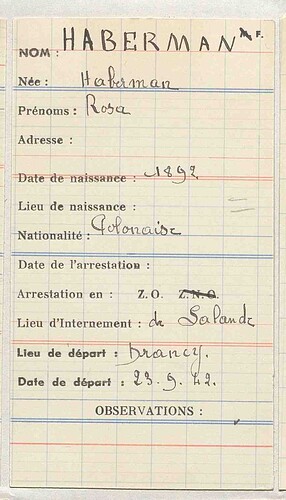 NOM : HABERMAN M. F.
Née : Haberman
Prénoms : Rosa
Adresse :
Date de naissance : 1892
Lieu de naissance :
Nationalité : Polonaise
Date de l'arrestation :
Arrestation en : Z.O. Z.N.O.
Lieu d'Internement : de Lalande
Lieu de départ : Drancy.
Date de départ : 23.9.42.
OBSERVATIONS :